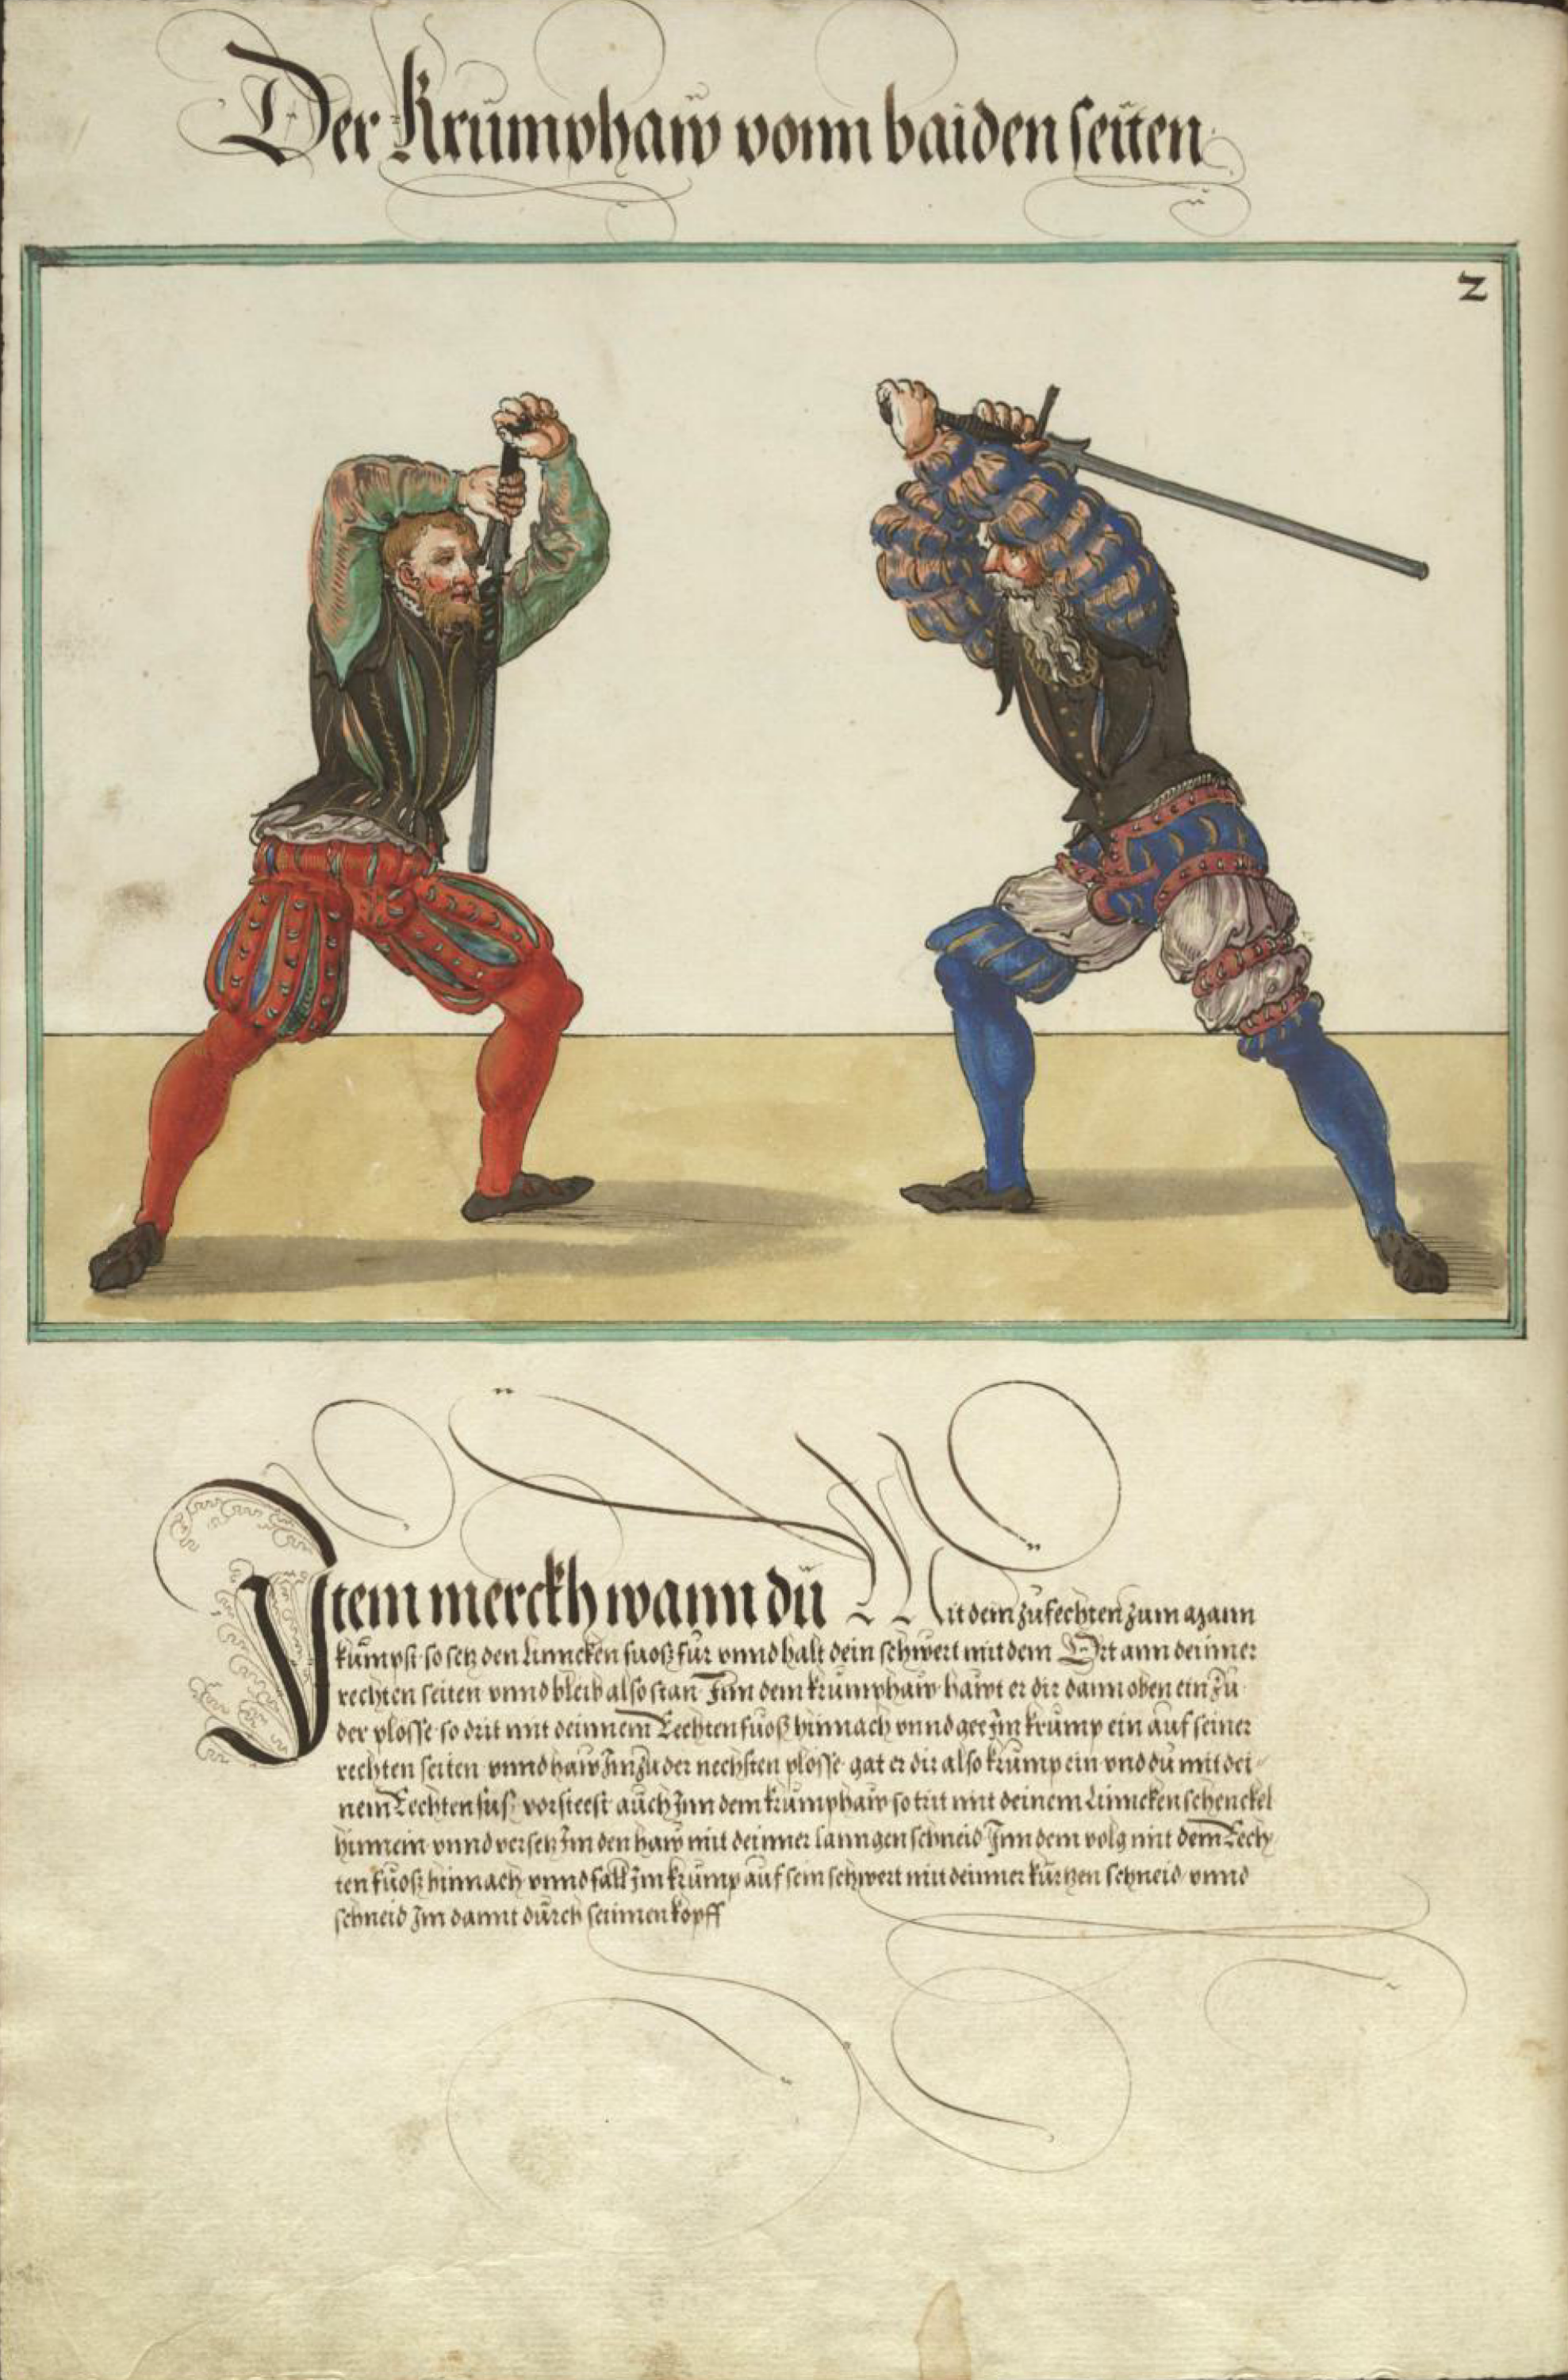 Der Krumphaw vonn baiden seiten
2
Item merckh wann du Mit dem zufechten zum
kumpst so setz den linncken fuosz für vnnd halt dein schwert mit dem Ort ann deinner
rechten seiten vnnd bleib also stan Inn dem krumphaw hawt er dir dann oben ein zu
der plosse so drit mit deinnem Rechten fuosz hinnach vnnd gee Im krump ein auf seiner
rechten seiten vnnd haw Im zu der nechsten plosse gat er dir also krump ein vnd du mit dei-
nem Rechten fus vorsteest auch Inn dem krumphaw so trit mit deinem Linncken schenckel
hinnein vnnd versetz Im den haw mit deinner lanngen schneid Inn dem volg mit dem Rech
ten fuosz hinnach vnnd fall Im krump auf sein schwert mit deinner kurtzen schneid vnnd
schneid Im damit durch seinnen kopff